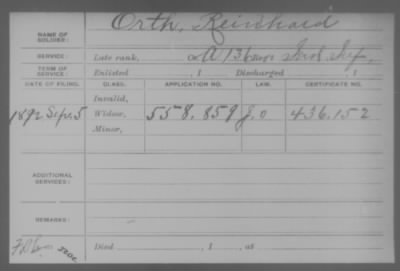 Orth, Reinhard
NAME OF SOLDIER:
SERVICE: Late rank, Co A 136 Reg't Ind. Inf.
TERM OF SERVICE: Enlisted , 1 Discharged , 1
DATE OF FILING. CLASS. APPLICATION NO. LAW. CERTIFICATE NO.
Invalid,
1892 Sep. 5 Widow, 558.859 G.O 436.152
Minor,
ADDITIONAL SERVICES:
REMARKS:
Died , 1 , at